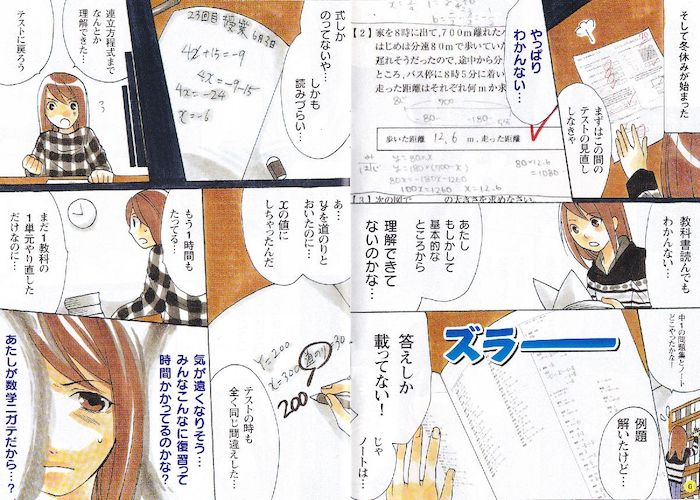 そして冬休みが始まった
まずはこの間の
テストの見直し
しなきゃ
やっぱり
わかんない…
【2】家を8時に出て,700m離れた
はじめは分速80mで歩いてい
遅れそうだったので,途中から分
ところ,バス停に8時5分に着い
走った距離はそれぞれ何mか求
歩いた距離 12,6 m,走った距離
80-180
y=80×x
y=180×(700-x)
80x=-180x-1260
100x=1260 x=12.6
80×12.6
=1080
【3】次の図で の大きさを求めなさい。
教科書読んでも
わかんない…
あたし
もしかして
基本的な
ところから
理解できて
ないのかな…
中1の問題集とノート
どこやったかな!
例題
解いたけど…
ズラーーー
答えしか
載ってない!
じゃ
ノートは…
6
式しか
のってないや…
しかも
読みづらい…
23回目 授業 6月3日
4x+15=-9
4x=-9-15
4x=-24
x=-6
連立方程式まで
なんとか
理解できた…
テストに戻ろう
あ…
yを道のりと
おいたのに…
xの値に
しちゃったんだ
もう1時間も
たってる…
まだ1教科の
1単元やり直した
だけなのに…
y=200
x=300
道のり
200
テストの時も
全く同じ間違えした…
気が遠くなりそう…
みんなこんなに復習って
時間かかってるのかな?
あたしが数学ニガテだから…?